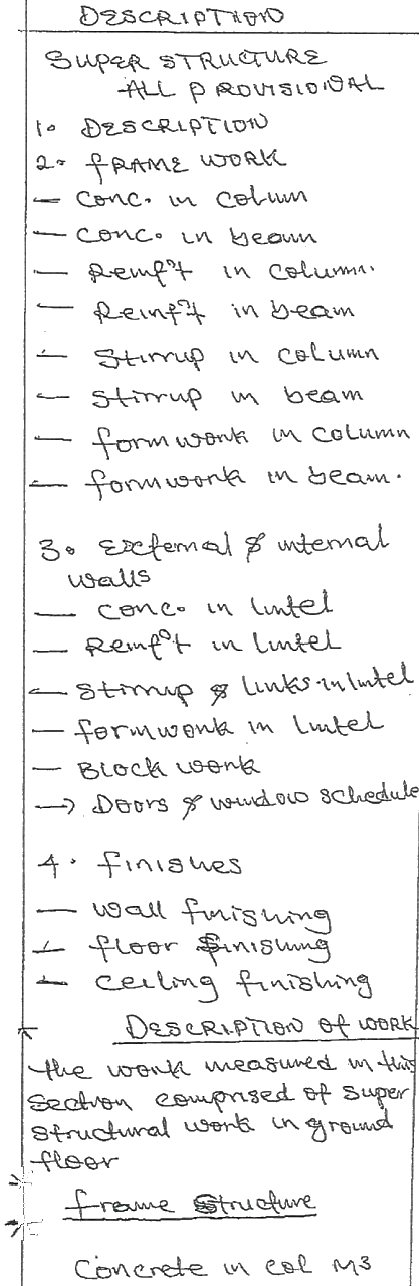 DESCRIPTION
SUPER STRUCTURE
ALL PROVISIONAL
1. DESCRIPTION
2. FRAME WORK
- Conc. in Column
- Conc. in beam
- Reinf't in column.
- Reinf't in beam
- Stirrup in column
- Stirrup in beam
- formwork in column
- formwork in beam.
3. External & internal
walls
- Conc. in lintel
- Reinf't in lintel
- Stirrup & links in lintel
- formwork in lintel
- Block work
→ Doors & window schedule
4. finishes
- wall finishing
- floor finishing
- ceiling finishing
DESCRIPTION of WORK
the work measured in this
Section comprised of super
structural work in ground
floor
frame Structure
Concrete in col M3